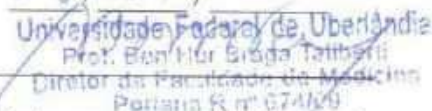 Universidade Federal de Uberlândia
Prof. Ben Hur Braga Taliberti
Diretor da Faculdade de Medicina
Portaria R nº 674/09